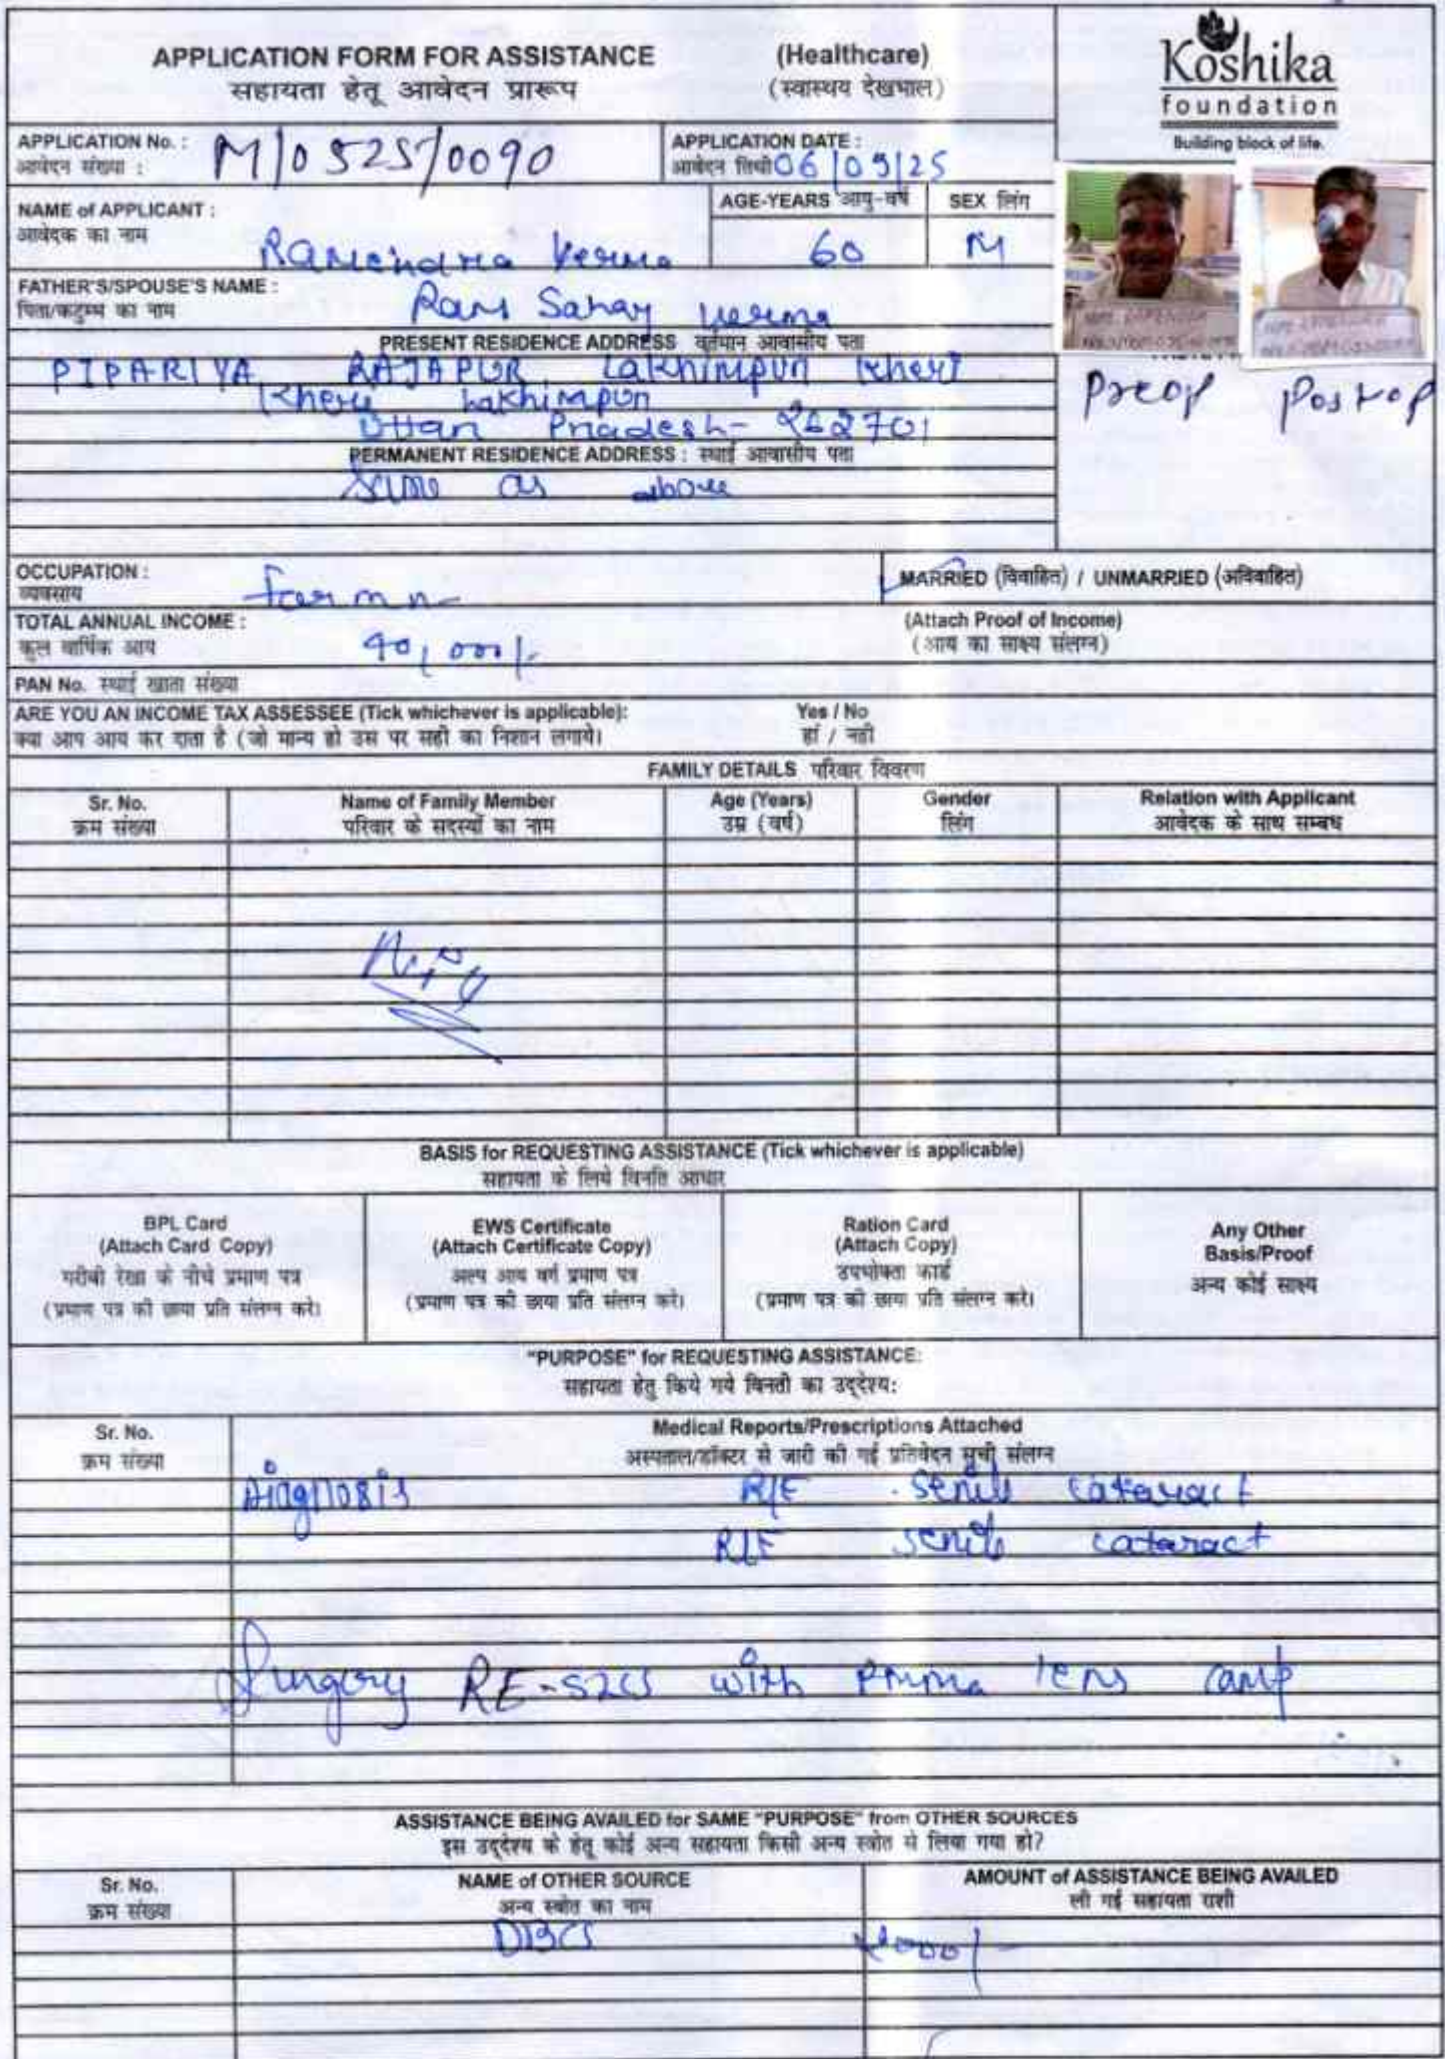 APPLICATION FORM FOR ASSISTANCE (Healthcare)
सहायता हेतू आवेदन प्रारूप (स्वास्थय देखभाल)
Koshika
foundation
Building block of life.
APPLICATION No. : M/0525/0090
आवेदन संख्या :
APPLICATION DATE :
आवेदन तिथी 06/05/25
NAME of APPLICANT :
आवेदक का नाम
Ramendra Verma
AGE-YEARS आयु-वर्ष
60
SEX लिंग
M
FATHER'S/SPOUSE'S NAME :
पिता/कटुम्ब का नाम
Ram Sahay Verma
PRESENT RESIDENCE ADDRESS वर्तमान आवासीय पता
PIPARIYA RAJAPUR Lakhimpur Kheri
Kheri Lakhimpur
Uttar Pradesh- 262701
Preop Postop
PERMANENT RESIDENCE ADDRESS : स्थाई आवासीय पता
Same as above
OCCUPATION :
व्यवसाय
MARRIED (विवाहित) / UNMARRIED (अविवाहित)
TOTAL ANNUAL INCOME :
कुल वार्षिक आय
(Attach Proof of Income)
(आय का साक्ष्य संलग्न)
PAN No. स्थाई खाता संख्या
ARE YOU AN INCOME TAX ASSESSEE (Tick whichever is applicable): Yes / No
क्या आप आय कर दाता है (जो मान्य हो उस पर सही का निशान लगाये। हां / नही
FAMILY DETAILS परिवार विवरण
Sr. No. Name of Family Member Age (Years) Gender Relation with Applicant
क्रम संख्या परिवार के सदस्यों का नाम उम्र (वर्ष) लिंग आवेदक के साथ सम्बध
BASIS for REQUESTING ASSISTANCE (Tick whichever is applicable)
सहायता के लिये विनति आधार
BPL Card
(Attach Card Copy)
गरीबी रेखा के नीचे प्रमाण पत्र
(प्रमाण पत्र की छाया प्रति संलग्न करे।
EWS Certificate
(Attach Certificate Copy)
अल्प आय वर्ग प्रमाण पत्र
(प्रमाण पत्र की छाया प्रति संलग्न करे।
Ration Card
(Attach Copy)
उपभोक्ता कार्ड
(प्रमाण पत्र की छाया प्रति संलग्न करे।
Any Other
Basis/Proof
अन्य कोई साक्ष्य
"PURPOSE" for REQUESTING ASSISTANCE:
सहायता हेतु किये गये विनती का उद्देश्य:
Sr. No. Medical Reports/Prescriptions Attached
क्रम संख्या अस्पताल/डॉक्टर से जारी की गई प्रतिवेदन सूची संलग्न
Diagnosis R/E - senile cataract
senile cataract
Surgery RE-SICS with PMMA lens camp
ASSISTANCE BEING AVAILED for SAME "PURPOSE" from OTHER SOURCES
इस उद्देश्य के हेतू कोई अन्य सहायता किसी अन्य स्त्रोत से लिया गया हो?
Sr. No. NAME of OTHER SOURCE AMOUNT of ASSISTANCE BEING AVAILED
क्रम संख्या अन्य स्त्रोत का नाम ली गई सहायता राशी
DBCS